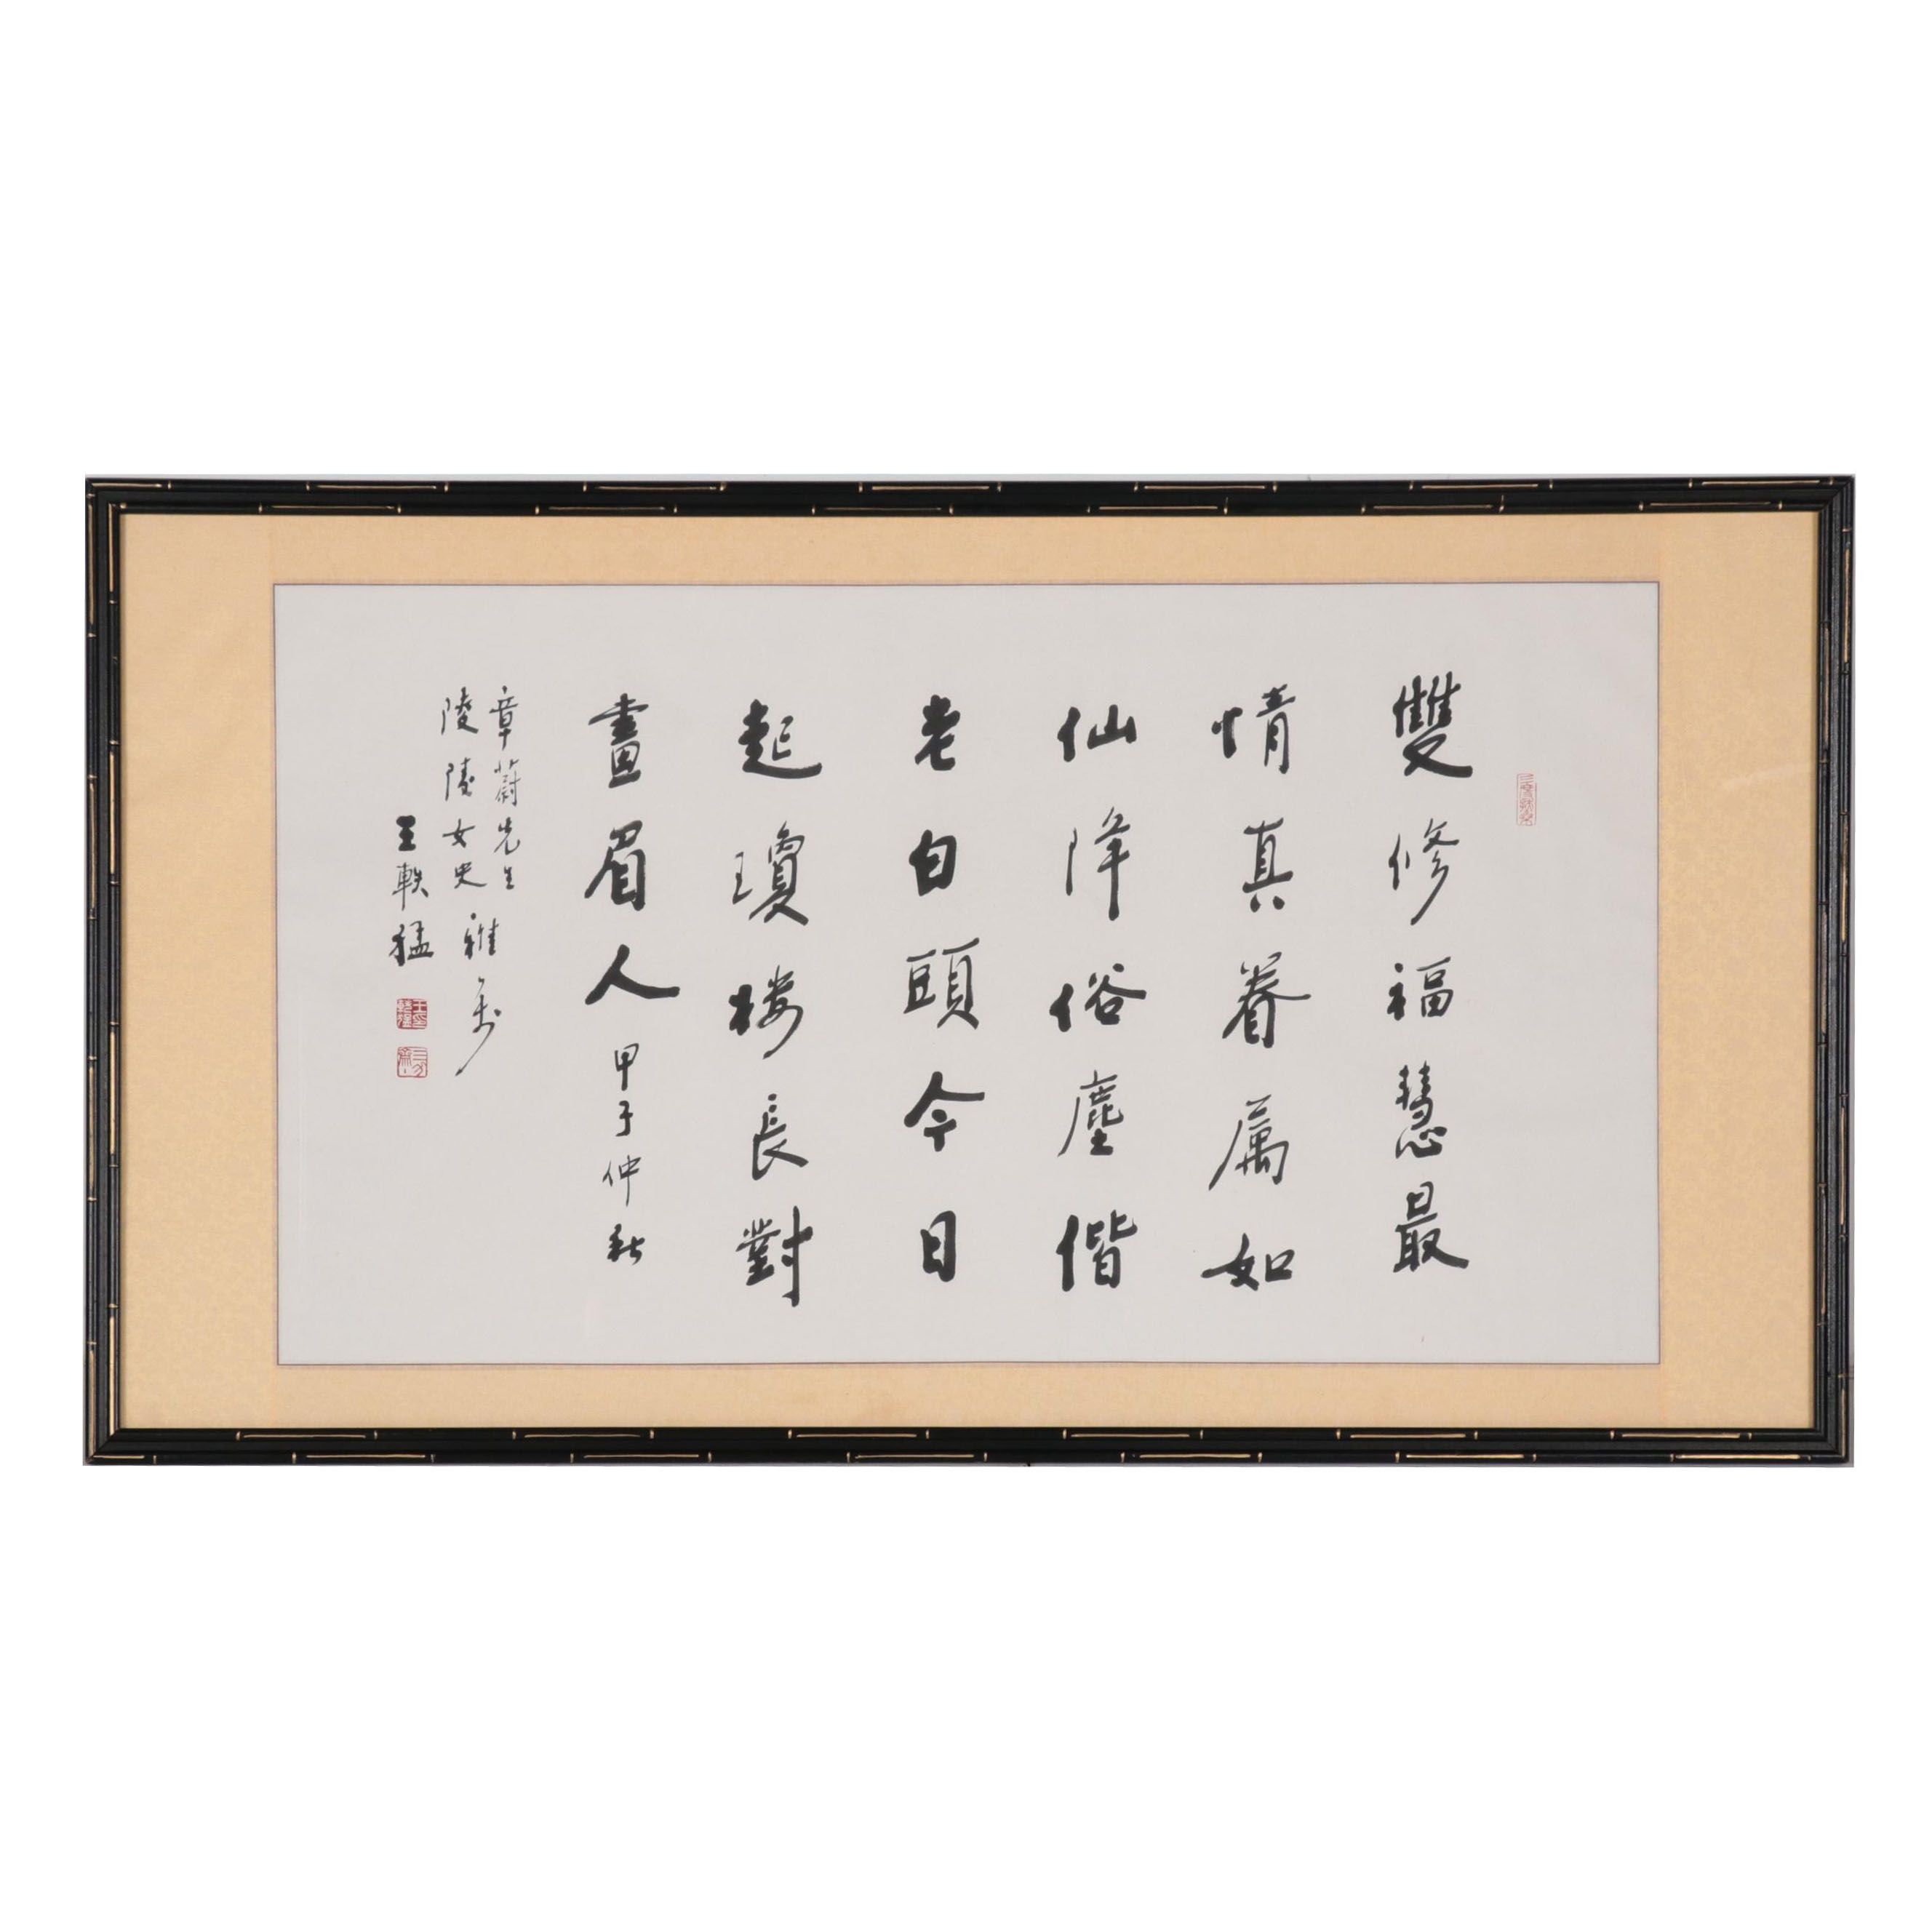 雙修福慧最
情真眷属如
仙降俗塵偕
老白頭今日
起瓊楼長對
畫眉人 甲子仲秋
章蔚先生
陵陵女史 雅
王軼猛